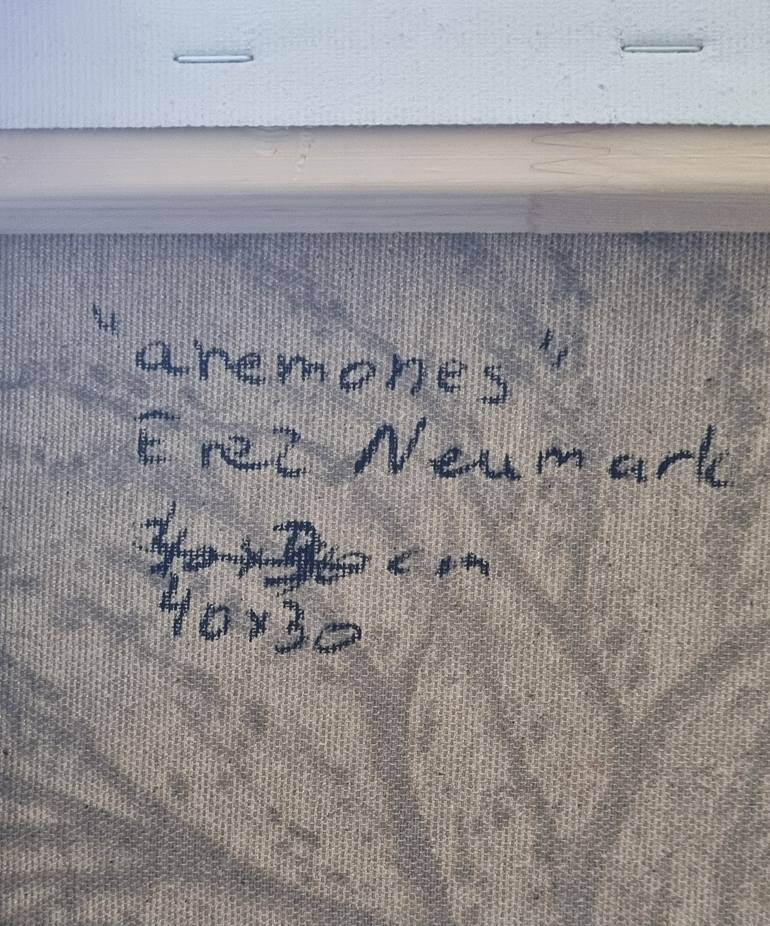 "anemones"
Erez Neumark
cm
40x30